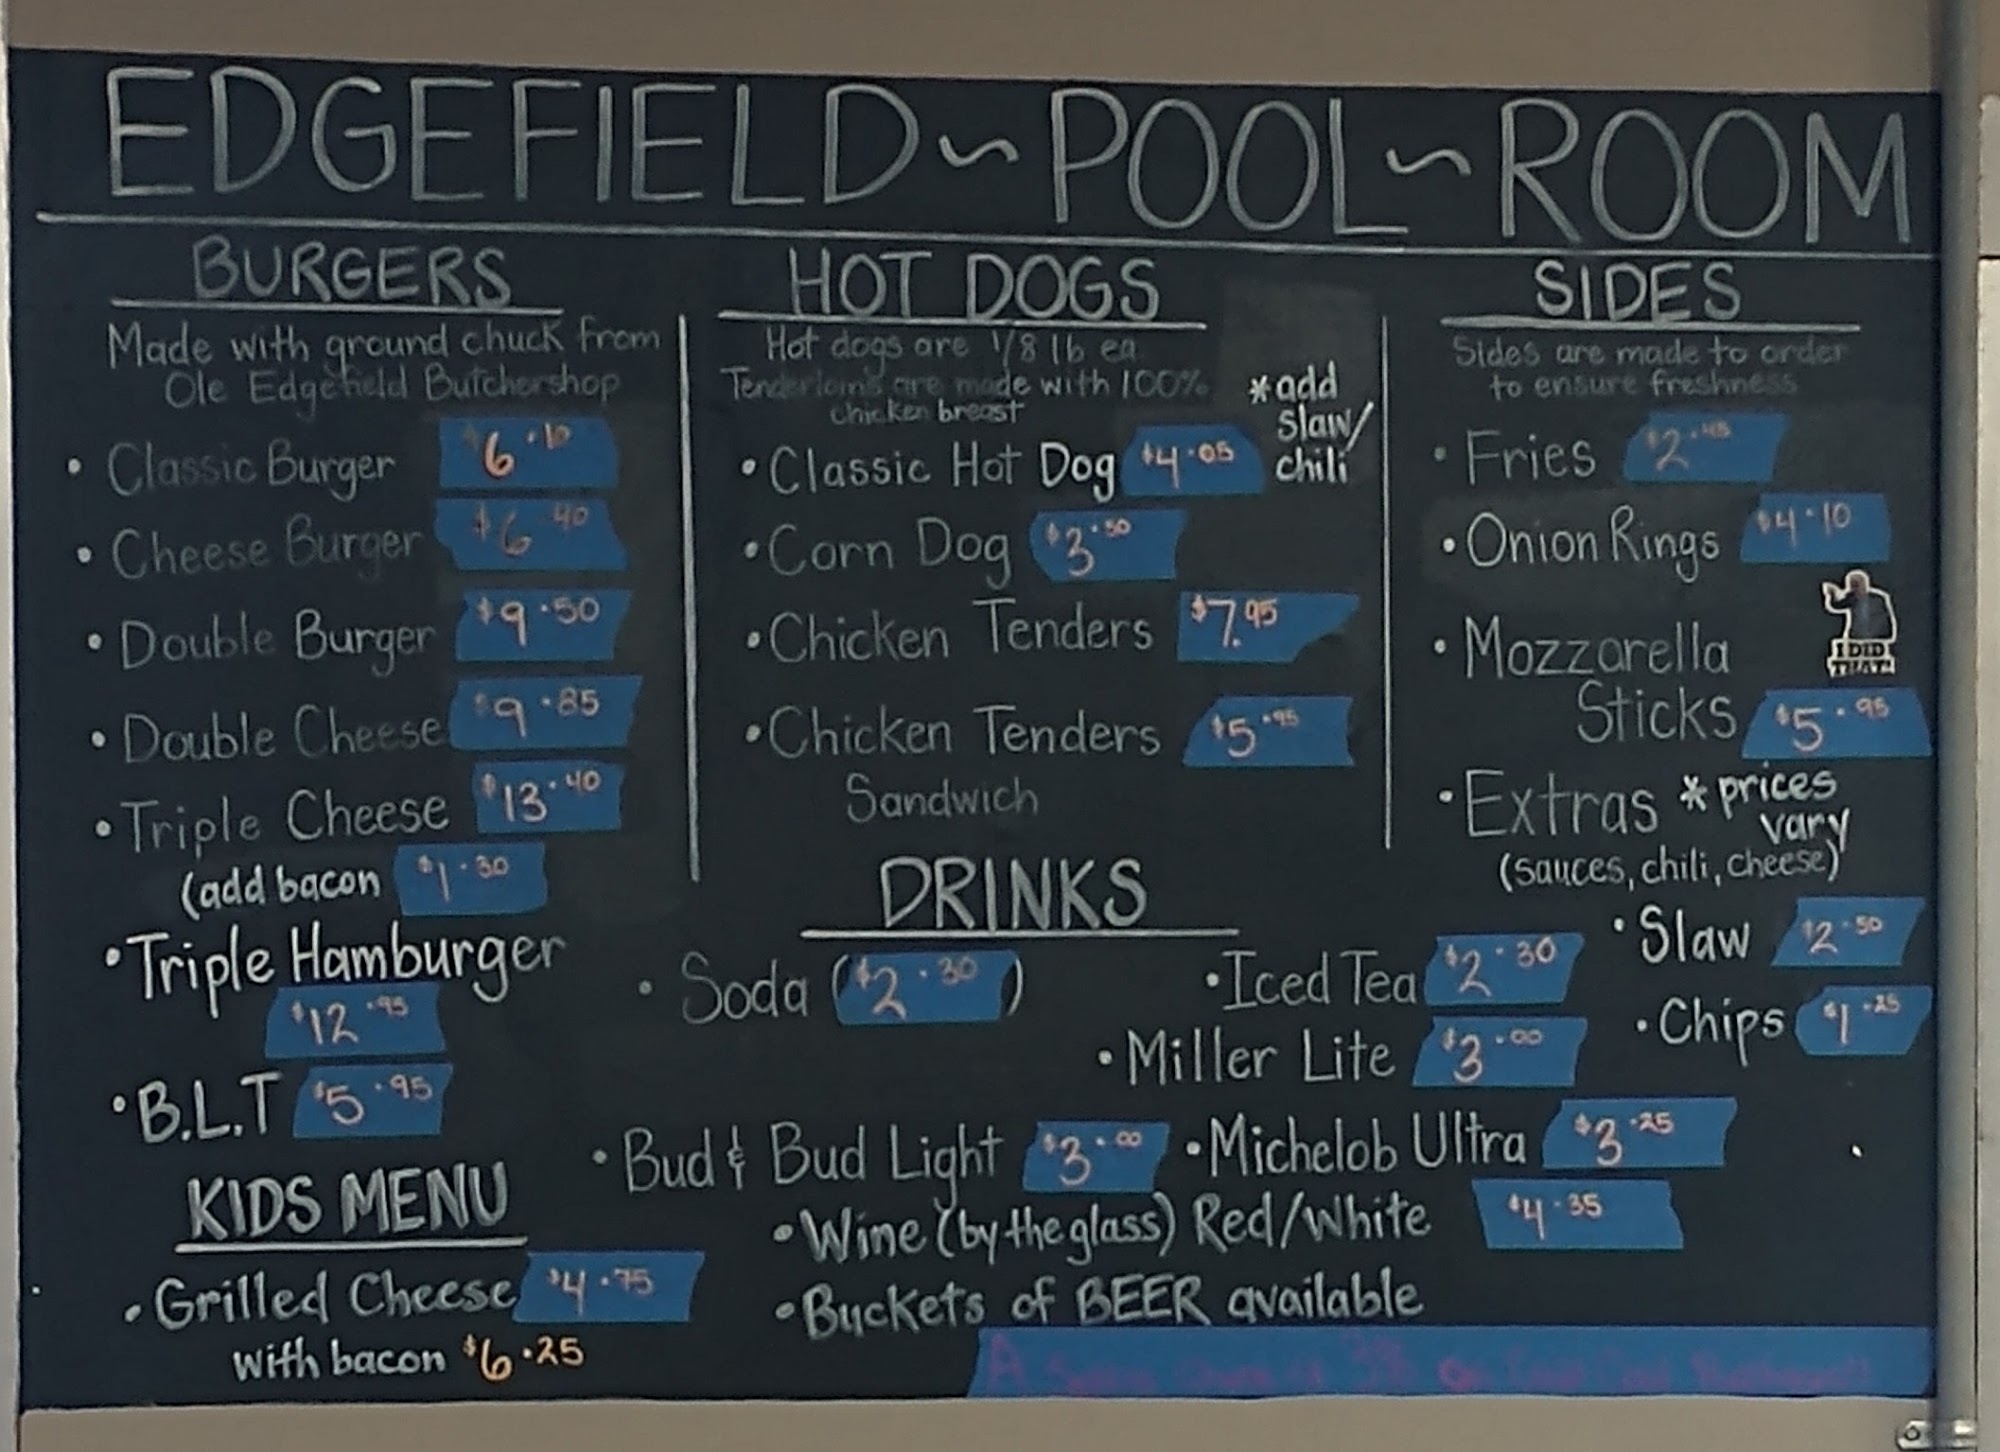 EDGEFIELD~POOL~ROOM
BURGERS
Made with ground chuck from
Ole Edgefield Butchershop
• Classic Burger $6.10
• Cheese Burger $6.40
• Double Burger $9.50
• Double Cheese $9.85
• Triple Cheese $13.40
(add bacon $1.30
• Triple Hamburger
$12.95
• B.L.T $5.95
KIDS MENU
• Grilled Cheese $4.75
with bacon $6.25
HOT DOGS
Hot dogs are 1/8 lb ea
Tenderloins are made with 100%
chicken breast
*add
slaw/
chili
• Classic Hot Dog $4.05
• Corn Dog $3.50
• Chicken Tenders $7.95
• Chicken Tenders $5.95
Sandwich
SIDES
Sides are made to order
to ensure freshness
• Fries $2.45
• Onion Rings $4.10
I DID
THAT!
• Mozzarella
Sticks $5.95
• Extras *prices
vary
(sauces, chili, cheese)
• Slaw $2.50
• Chips $1.25
DRINKS
• Soda ($2.30)
• Iced Tea $2.30
• Miller Lite $3.00
• Bud & Bud Light $3.00
• Michelob Ultra $3.25
• Wine (by the glass) Red/White $4.35
• Buckets of BEER available